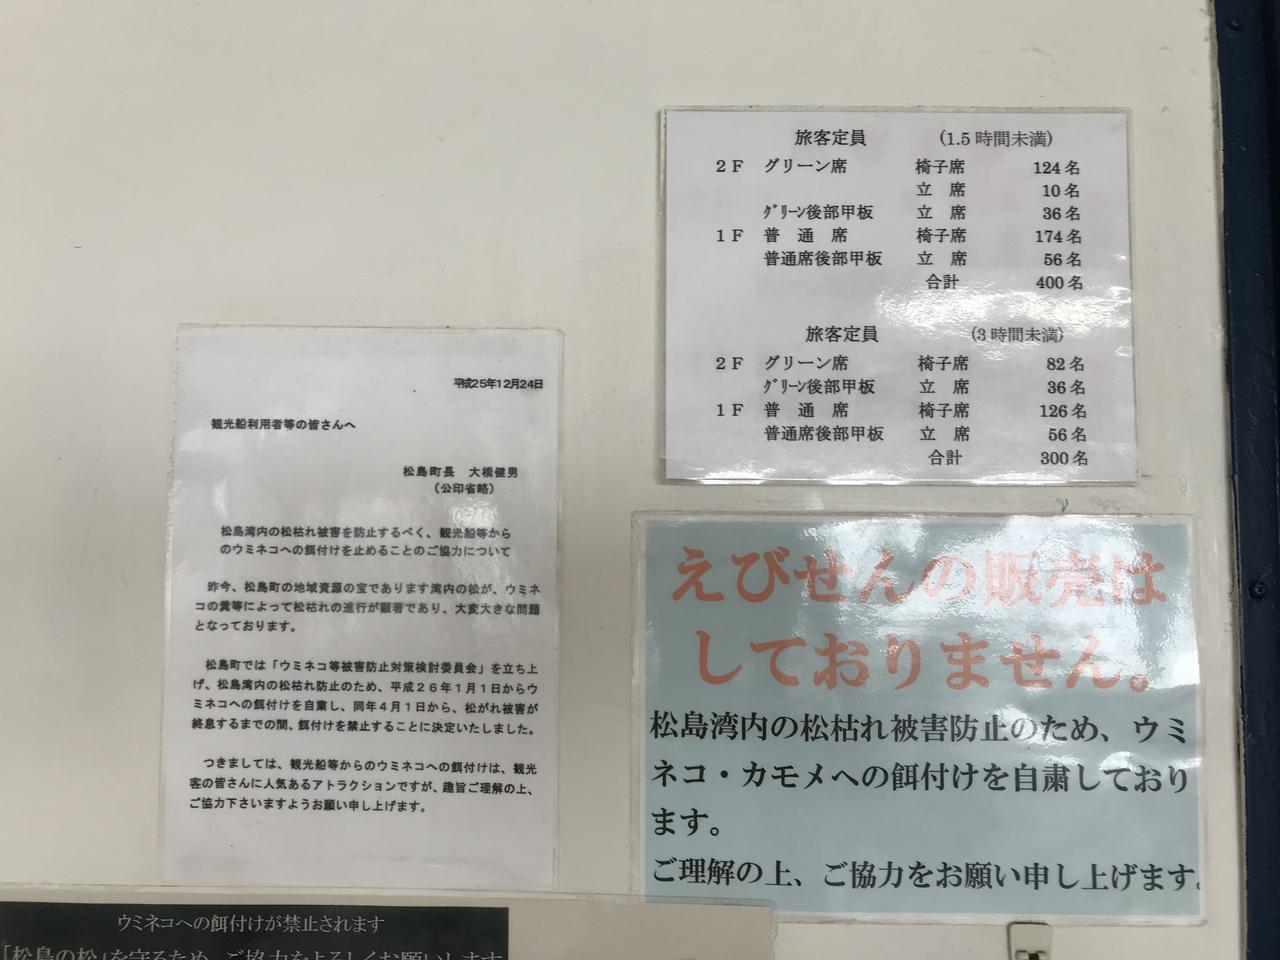 旅客定員 (1.5時間未満)
2F グリーン席 椅子席 124名
立 席 10名
グリーン後部甲板 立 席 36名
1F 普 通 席 椅子席 174名
普通席後部甲板 立 席 56名
合計 400名
旅客定員 (3時間未満)
2F グリーン席 椅子席 82名
グリーン後部甲板 立 席 36名
1F 普 通 席 椅子席 126名
普通席後部甲板 立 席 56名
合計 300名
平成25年12月24日
観光船利用者等の皆さんへ
松島町長 大橋健男
（公印省略）
松島湾内の松枯れ被害を防止するべく、観光船等から
のウミネコへの餌付けを止めることのご協力について
昨今、松島町の地域資源の宝であります湾内の松が、ウミネ
コの糞等によって松枯れの進行が顕著であり、大変大きな問題
となっております。
松島町では「ウミネコ等被害防止対策検討委員会」を立ち上
げ、松島湾内の松枯れ防止のため、平成２６年１月１日からウ
ミネコへの餌付けを自粛し、同年４月１日から、松がれ被害が
終息するまでの間、餌付けを禁止することに決定いたしました。
つきましては、観光船等からのウミネコへの餌付けは、観光
客の皆さんに人気あるアトラクションですが、趣旨ご理解の上、
ご協力下さいますようお願い申し上げます。
えびせんの販売は
しておりません。
松島湾内の松枯れ被害防止のため、ウミ
ネコ・カモメへの餌付けを自粛しており
ます。
ご理解の上、ご協力をお願い申し上げます。
ウミネコへの餌付けが禁止されます
「松島の松」を守るため、ご協力をよろしくお願いします